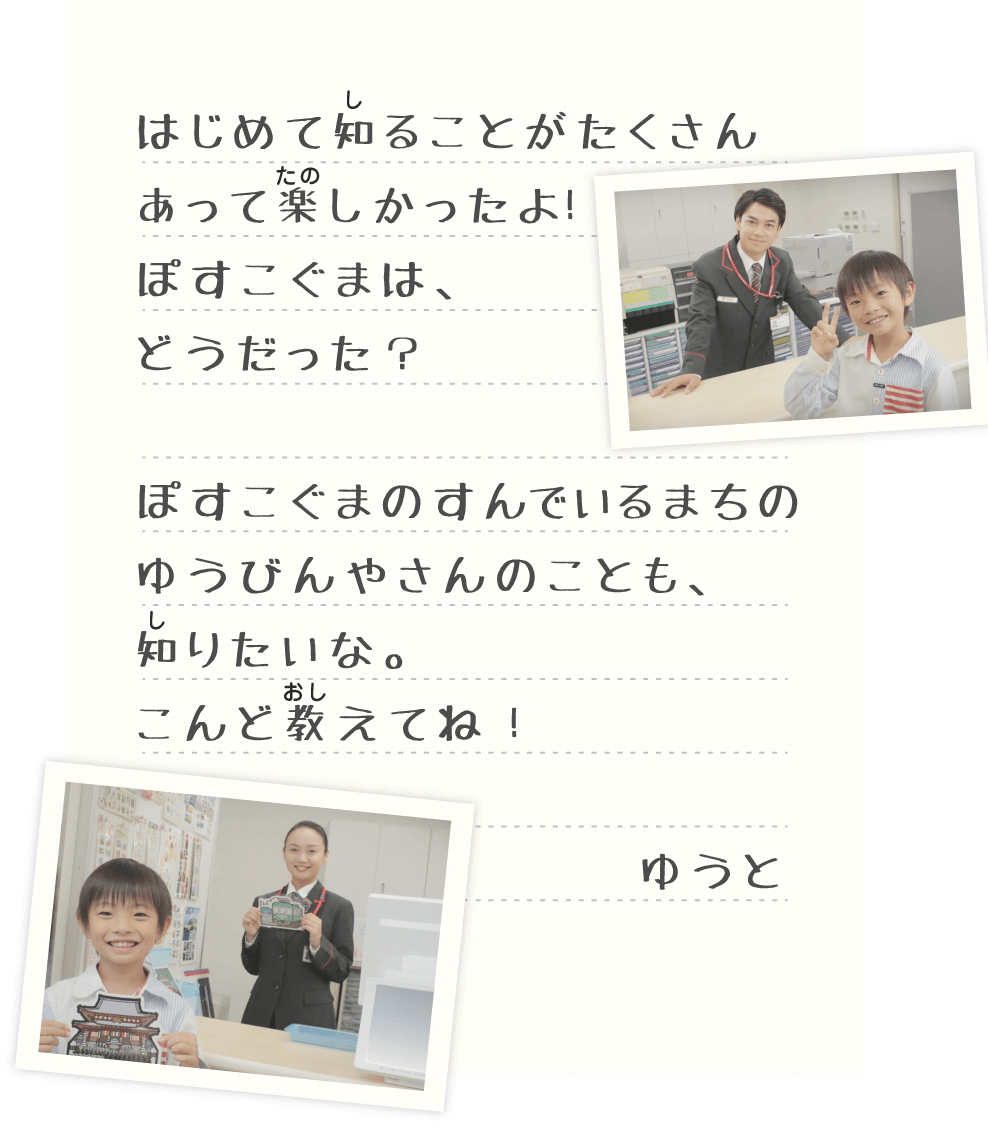 はじめて知ることがたくさん
あって楽しかったよ!
ぽすこぐまは、
どうだった？
ぽすこぐまのすんでいるまちの
ゆうびんやさんのことも、
知りたいな。
こんど教えてね！
ゆうと